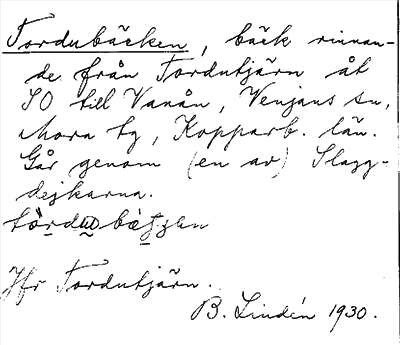 Tordubäcken, bäck rinnan-
de från Tordutjärn åt
SO till Vanån, Venjans sn,
Mora tg, Kopparb. län.
Går genom (en av) Slagg-
dejkarna.
Jfr Tordutjärn.
B. Lindén 1930.